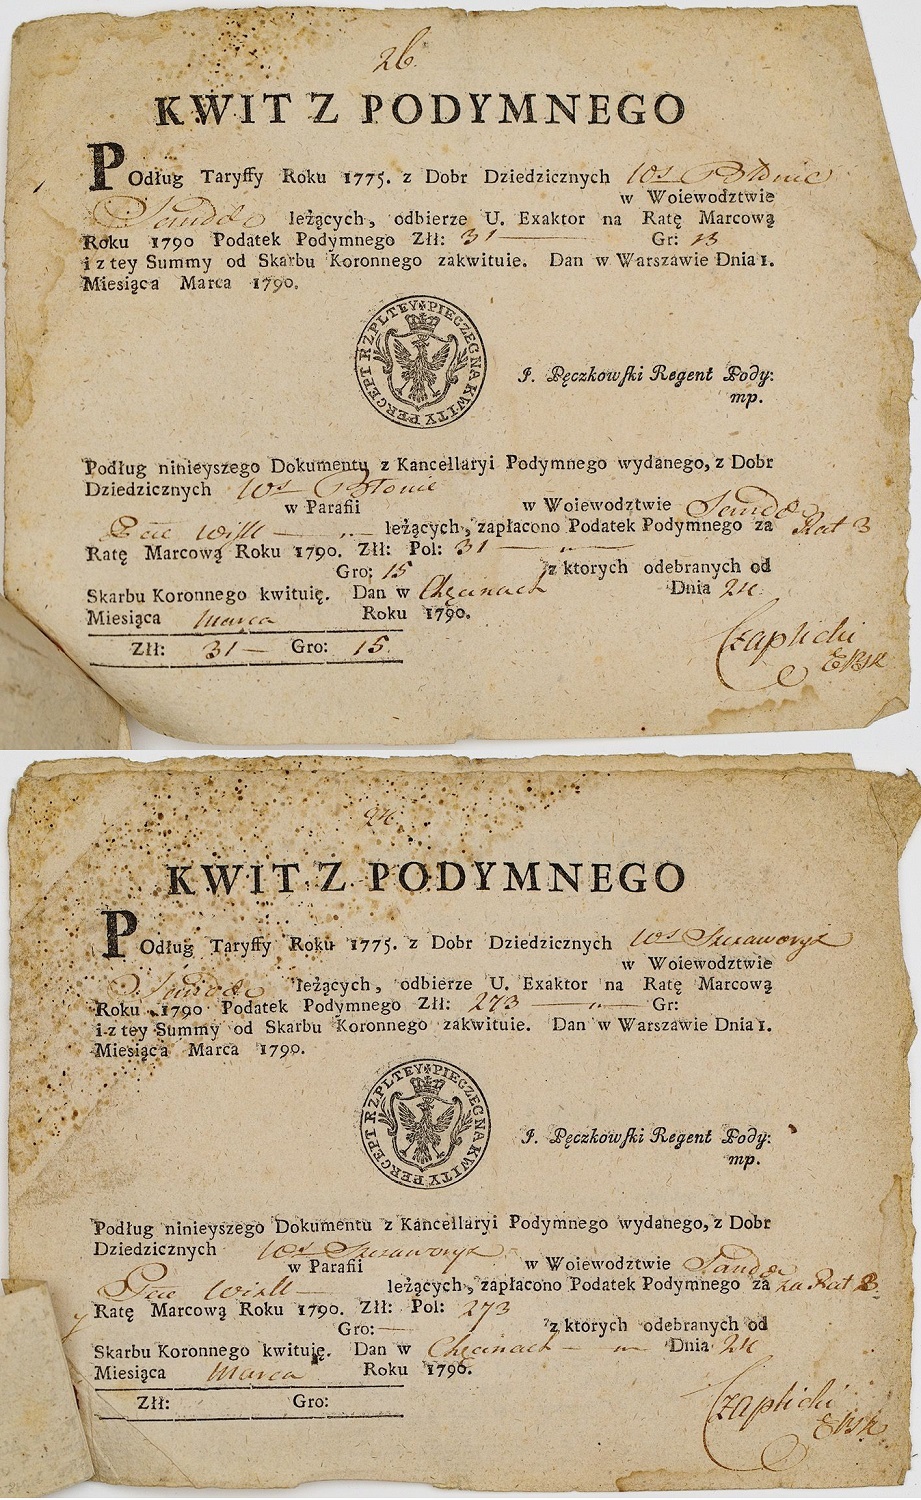 26.
KWIT Z PODYMNEGO
POdług Taryffy Roku 1775. z Dobr Dziedzicznych Wś Błonie
w Woiewodztwie
Sendo leżących, odbierze U. Exaktor na Ratę Marcową
Roku 1790 Podatek Podymnego Złł: 31 Gr:
i z tey Summy od Skarbu Koronnego zakwituie. Dan w Warszawie Dnia 1.
Miesiąca Marca 1790.
PIECZEC NA KWITY PERCEPT RZPLTEY
J. Pęczkowſki Regent Pody:
mp.
Podług ninieyszego Dokumentu z Kancellaryi Podymnego wydanego, z Dobr
Dziedzicznych Wś Błonie
w Parafii w Woiewodztwie Sendo
Pcie Wisll leżących, zapłacono Podatek Podymnego za Rat 3
Ratę Marcową Roku 1790. Złł: Pol: 31 — „ —
Gro: 15 z ktorych odebranych od
Skarbu Koronnego kwituię. Dan w Chęcinach Dnia 24
Miesiąca Marca Roku 1790.
Złł: 31 — Gro: 15.
Czaplicki
24.
KWIT Z PODYMNEGO
POdług Taryffy Roku 1775. z Dobr Dziedzicznych Wś
w Woiewodztwie
Sendo leżących, odbierze U. Exaktor na Ratę Marcową
Roku 1790 Podatek Podymnego Złł: 273 — „ — Gr:
i z tey Summy od Skarbu Koronnego zakwituie. Dan w Warszawie Dnia 1.
Miesiąca Marca 1790.
PIECZEC NA KWITY PERCEPT RZPLTEY
J. Pęczkowſki Regent Pody:
mp.
Podług ninieyszego Dokumentu z Kancellaryi Podymnego wydanego, z Dobr
Dziedzicznych Wś
w Parafii w Woiewodztwie Sando
Pcie Wisll leżących, zapłacono Podatek Podymnego za za Rat 3
Ratę Marcową Roku 1790. Złł: Pol: 273
Gro: — z ktorych odebranych od
Skarbu Koronnego kwituię. Dan w Chęcinach — „ — Dnia 24
Miesiąca Marca Roku 1790.
Złł: Gro:
Czaplicki